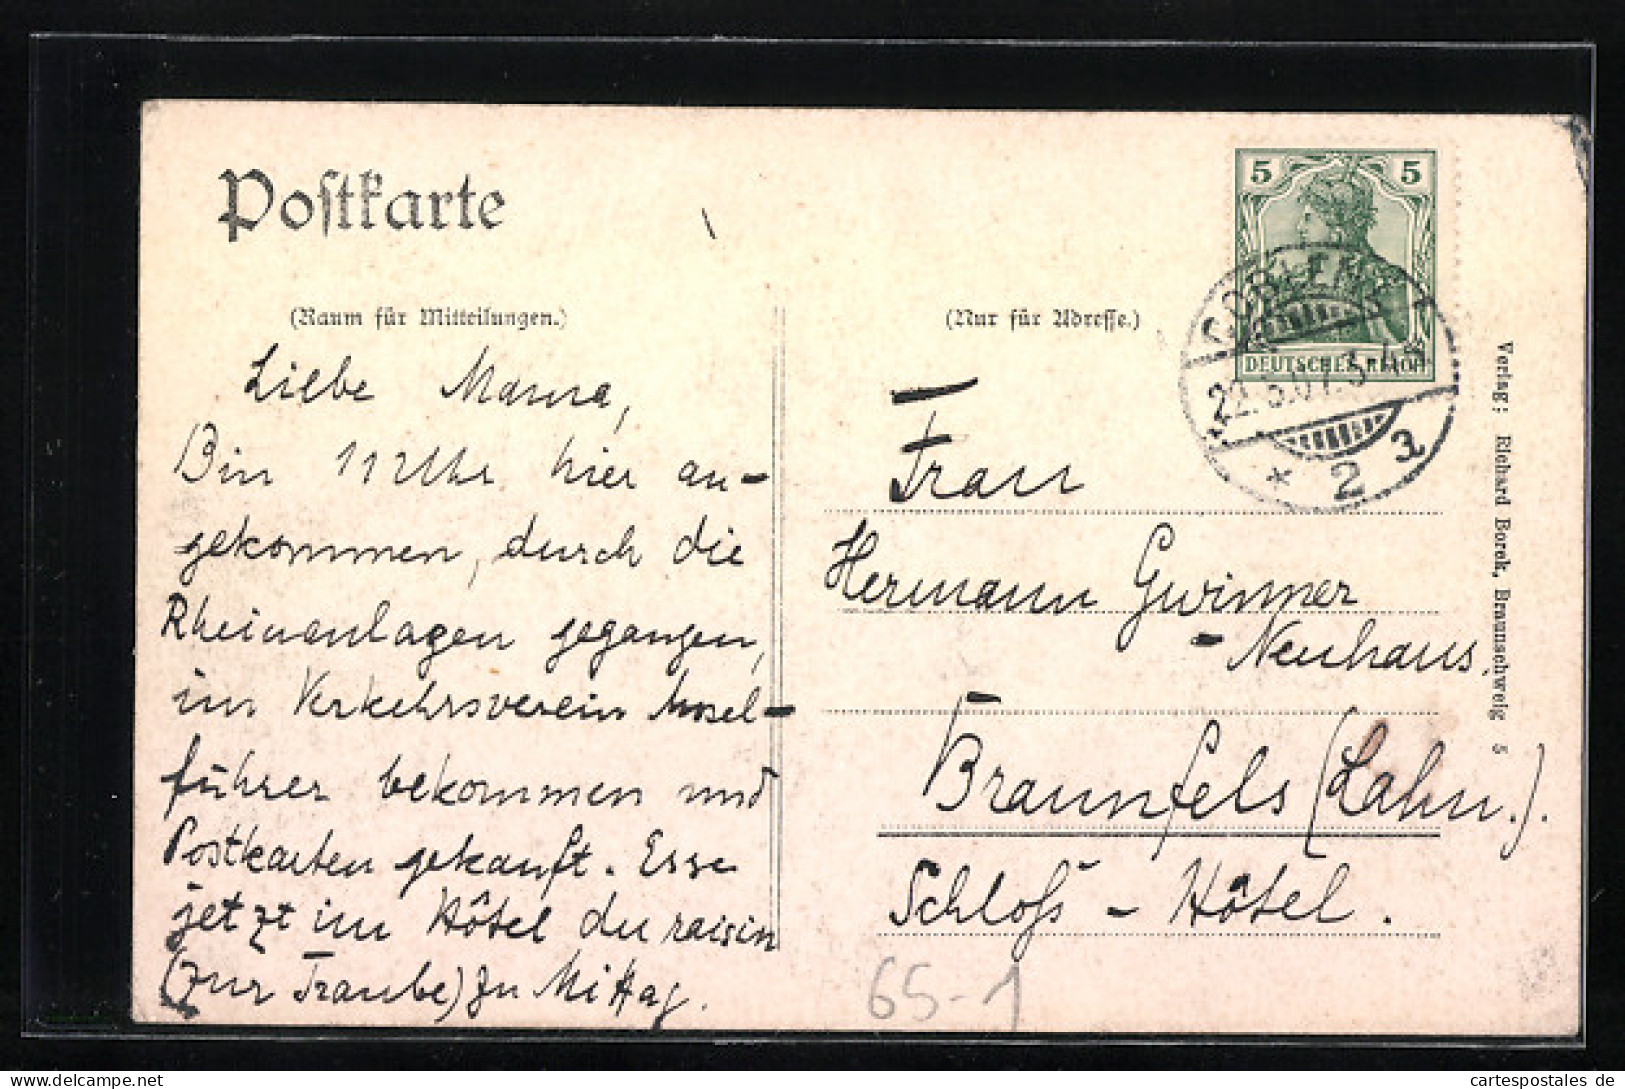 Postkarte
(Raum für Mitteilungen.)
Liebe Mama,
Bin 11 Uhr hier an-
gekommen, durch die
Rheinanlagen gegangen,
im Verkehrsverein Mosel-
führer bekommen und
Postkarten gekauft. Esse
jetzt im Hôtel du raisin
(zur Traube) zu Mittag.
5 5
DEUTSCHES REICH
COBLENZ
22.5.07. 3-4N
* 2 a
(Nur für Adresse.)
Frau
Hermann Gwinner
- Neuhaus,
Braunfels (Lahn.).
Schloß - Hôtel.
Verlag: Richard Borek, Braunschweig 5
65-1
cartespostales de